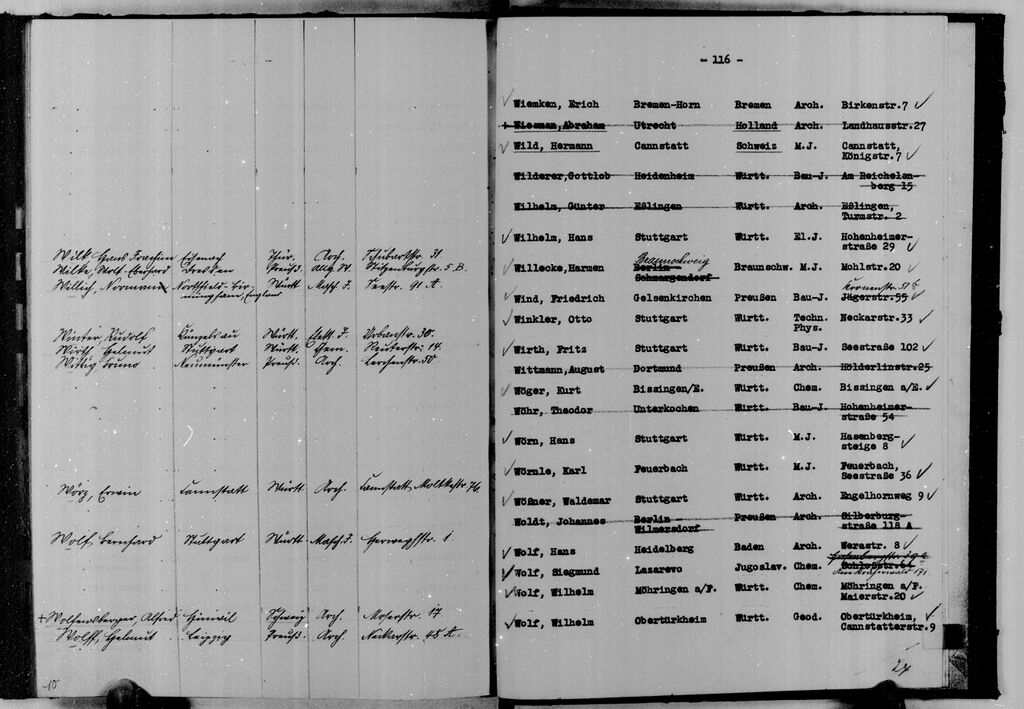 Wilk Hans Joachim Eisenach Thür. Arch. 31
Wilke, Wolf-Eberhard Dresden Preuß. 5 B.
Willich, Normann Northfield-Bir- Württ. Masch. J. Seestr. 91 A
mingham, England
Winter Rudolf Künzelsau Württ. Elekt. J. Urbanstr. 30.
Wirth, Helmut Stuttgart Württ. Chem. Reuterstr. 14.
Wittig Bruno Neumünster Preuß. Arch. Lerchenstr. 50
Wörz, Erwin Cannstatt Württ. Arch. Cannstatt, Moltkestr. 76
Wolf Bernhard Stuttgart Württ. Masch. J. Herweghstr. 1
+ Wolfensberger, Alfred Hinwil Schweiz Arch. Moserstr. 17
Wolff, Helmut Leipzig Preuß. Arch. Neckarstr. 48 A.
10
- 116 -
✓ Wiemken, Erich Bremen-Horn Bremen Arch. Birkenstr.7 ✓
+ Wiesman, Abraham Utrecht Holland Arch. Landhausstr.27
✓ Wild, Hermann Cannstatt Schweiz M.J. Cannstatt,
Königstr.7 ✓
Wilderer,Gottlob Heidenheim Württ. Bau-J. Am Reichelen-
berg 15
Wilhelm, Günter Eßlingen Württ. Arch. Eßlingen,
Turmstr. 2
✓ Wilhelm, Hans Stuttgart Württ. El.J. Hohenheimer-
straße 29 ✓
Braunschweig
✓ Willecke,Harmen Berlin - Braunschw. M.J. Mohlstr.20 ✓
Schmargendorf
Kornenstr. 51 B
✓ Wind, Friedrich Gelsenkirchen Preußen Bau-J. Jägerstr.55 ✓
✓ Winkler, Otto Stuttgart Württ. Techn. Neckarstr.33 ✓
Phys.
✓ Wirth, Fritz Stuttgart Württ. Bau-J. Seestraße 102 ✓
Wittmann,August Dortmund Preußen Arch. Hölderlinstr.25
✓ Wöger, Kurt Bissingen/E. Württ. Chem. Bissingen a/E. ✓
Wöhr, Theodor Unterkochen Württ. Bau-J. Hohenheimer-
straße 54
✓ Wörn, Hans Stuttgart Württ. M.J. Hasenberg-
steige 8 ✓
✓ Wörnle, Karl Feuerbach Württ. M.J. Feuerbach,
Seestraße 36 ✓
✓ Wößner, Waldemar Stuttgart Württ. Arch. Engelhornweg 9 ✓
Woldt, Johannes Berlin - Preußen Arch. Silberburg-
Wilmersdorf straße 118 A
✓ Wolf, Hans Heidelberg Baden Arch. Werastr. 8 ✓
✓ Wolf, Siegmund Lazarevo Jugoslav. Chem. Schloßstr.61
✓ Wolf, Wilhelm Möhringen a/F. Württ. Chem. Möhringen a/F.
Maierstr.20 ✓
✓ Wolf, Wilhelm Obertürkheim Württ. Geod. Obertürkheim, ✓
Cannstatterstr.9
27